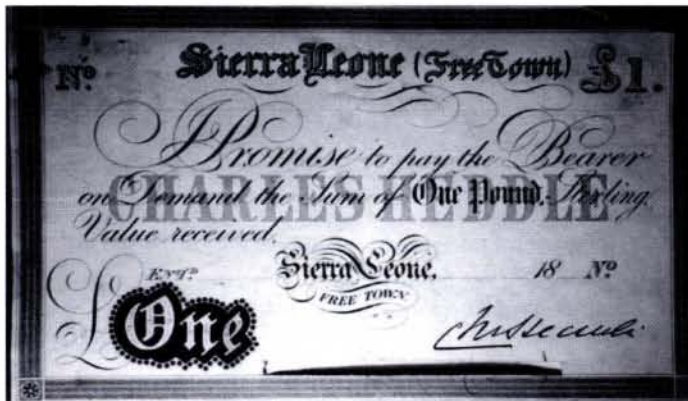 Nº Sierra Leone (Free Town) £1.
I Promise to pay the Bearer
on Demand the Sum of One Pound Sterling
CHARLES HEDDLE
Value received.
ENTD Sierra Leone, 18 Nº
FREE TOWN
£ One